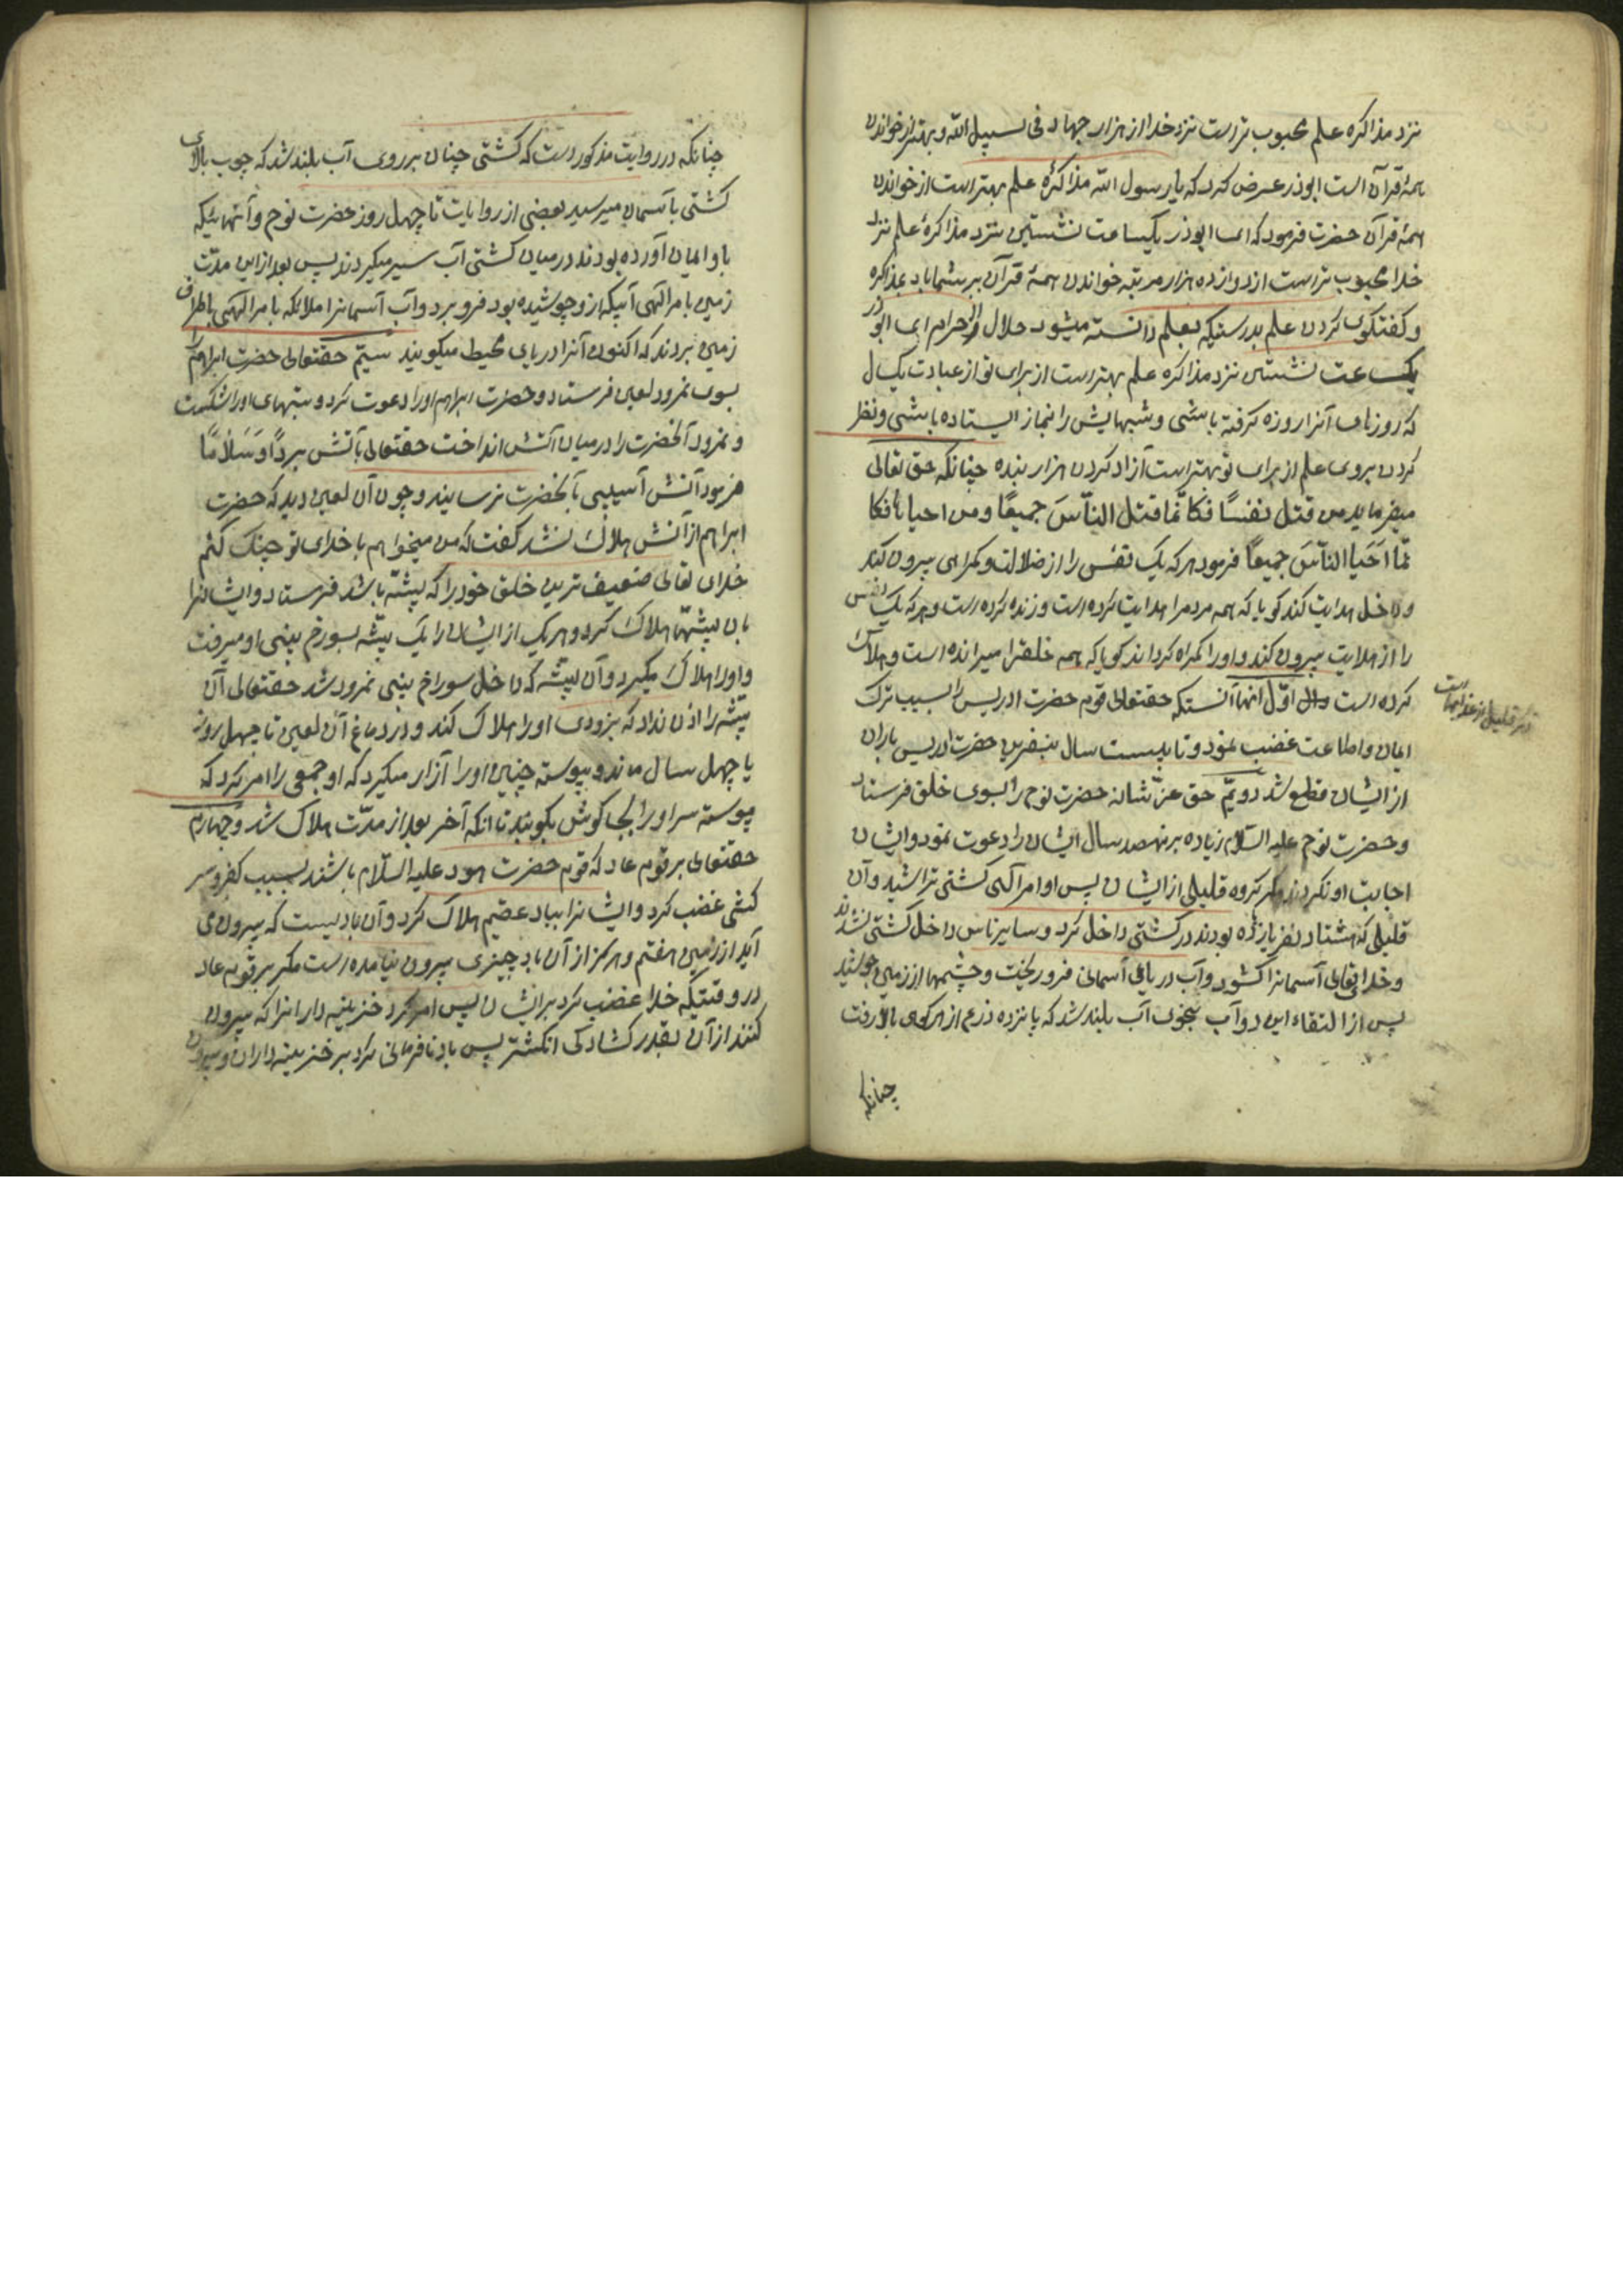 نزد مذاکره علم محبوب تر است نزد خدا از هزار جهاد فی سبیل الله و بهتر از خواندن
همهٔ قرآن است ابوذر عرض کرد که یا رسول الله مذاکرهٔ علم بهتر است از خواندن
همهٔ قرآن حضرت فرمود که ای ابوذر یکساعت نشستن نزد مذاکرهٔ علم نزد
خدا محبوب تر است از دوازده هزار مرتبه خواندن همهٔ قرآن بر شما باد بمذاکره
و گفتگوی کردن علم بدرستیکه بعلم دانسته میشود حلال از حرام ای ابوذر
یکساعت نشستن نزد مذاکره علم بهتر است از برای تو از عبادت یکسال
که روزهای آنرا روزه گرفته باشی و شبهایش را بنماز ایستاده باشی و نظر
کردن بروی علم از برای تو بهتر است از آزاد کردن هزار بنده چنانکه حق تعالی
میفرماید من قتل نفسًا فکانّما قتل النّاسَ جمیعًا ومن احیاها فکا
نّما اَحَیا النّاسَ جمیعًا فرمود هر که یک نفس را از ضلالت و گمراهی بیرون کند
و داخل هدایت کند گویا که همه مردمرا هدایت کرده است و زنده کرده است و هر که یک نفس
را از هدایت بیرون کند و او را گمراه گرداند گویا که همه خلقرا میرانده است و هلاک
کرده است اوّل انها آنستکه حقتعالی قوم حضرت ادریس را بسبب ترک
ذکر قلیلی از عذابها است
ایمان و اطاعت غضب نمود و تا بیست سال بنفرین حضرت ادریس باران
از ایشان قطع شد دویّم حق عزّ شانه حضرت نوح را بسوی خلق فرستاد
و حضرت نوح علیه السّلام زیاده بر نهصد سال ایشان را دعوت نمود و ایشان
اجابت او نکردند مگر گروه قلیلی از ایشان پس او امر آلهی کشتی تراشید و آن
قلیلی که هشتاد نفر بودند در کشتی داخل کرد و سایر ناس داخل کشتی نشدند
و خدای تعالی آسمانرا گشود و آب دریای آسمانی فرو ریخت و چشمها از زمین جوشید
پس از التقاء این دو آب بنحوی آب بلند شد که پانزده ذرع از هر کوهی بالا رفت
چنانکه
چنانکه در روایت مذکور است که کشتی چنان بر روی آب بلند شد که چوب بالای
کشتی باسمان میرسید بعضی از روایات تا چهل روز حضرت نوح و آنهائیکه
باو ایمان آورده بودند در میان کشتی آب سیر میکردند پس بعد از این مدّت
زمین بامر الهی آبیکه از و جوشیده بود فرو برد و آب آسمانرا ملائکه بامر الهی باطراف
زمین بردند که اکنون آنرا دریای محیط میگویند سیّم حقتعالی حضرت ابراهیم را
بسوی نمرود لعین فرستاد و حضرت ابراهیم او را دعوت کرد و بتهای او را شکست
و نمرود آنحضرت را در میان آتش انداخت حقتعالی بآتش بردًا وَ سَلامًا
فرمود آتش آسیبی بآنحضرت نرسانید و چون آن لعین دید که حضرت
ابراهیم از آتش هلاک نشد گفت که من میخواهم با خدای تو جنگ کنم
خدای تعالی ضعیف ترین خلق خود را که پشّه باشد فرستاد و ایشانرا
بان پشّها هلاک کرد و هر یک از ایشان را یک پشّه بسوراخ بینی او میرفت
و او را هلاک میکرد و آن پشّه که داخل سوراخ بینی نمرود شد حقتعالی آن
پشّه را اذن نداد که بزودی او را هلاک کند و در دماغ آن لعین تا چهل روز
یا چهل سال ماند و پیوسته چنین او را آزار میکرد که او جمعی را امر کرد که
پیوسته سر او را گوش بکوبند تا انکه آخر بعد از مدّت هلاک شد و چهارم
حقتعالی بر قوم عاد که قوم حضرت هود علیه السّلام باشند بسبب کفر و سر
کشی غضب کرد و ایشانرا بباد عقیم هلاک کرد و آن بادیست که بیرون می
آید از زمین هفتم و هرگز از آن باد چیزی بیرون نیامده است مگر بر قوم عاد
در وقتیکه خدا غضب کرد بر ایشان پس امر کرد خزینه دارانرا که بیرون
کنند از آن بقدر گشادگی انگشتر پس باد نافرمانی کرد بر خزینه داران و بیرون